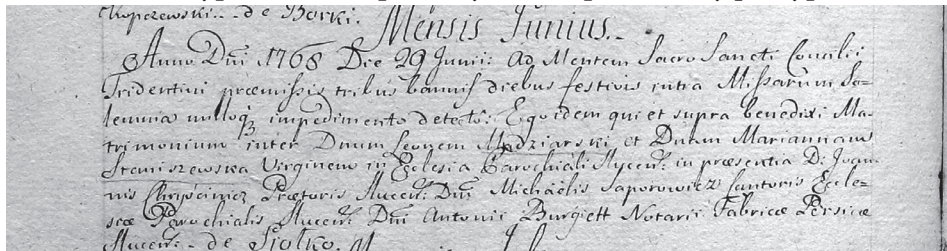 Kopczewski - - de Borki.
Mensis Junius.
Anno Dni 1768 Die 29 Junii: Ad Mentem Sacro Sancti Concilii
Tridentini præmissis tribus bannis diebus festivis intra Missarum So=
lemnia nulloq3 impedimento detecto: Ego idem qui et supra benedixi Ma=
trimonium inter Dnum Leonem Mędziarski et Dnam Mariannam
Staniszewska Virginem in Ecclesia Parochiali Slucen: in præsentia D: Joan=
nis Prætoris Slucen: Dni Michaelis Saporowicz Cantoris Eccle=
siæ Parochialis Slucen: Dni Antonii Burgiett Notarii Fabricæ Persicæ
Slucen: - de